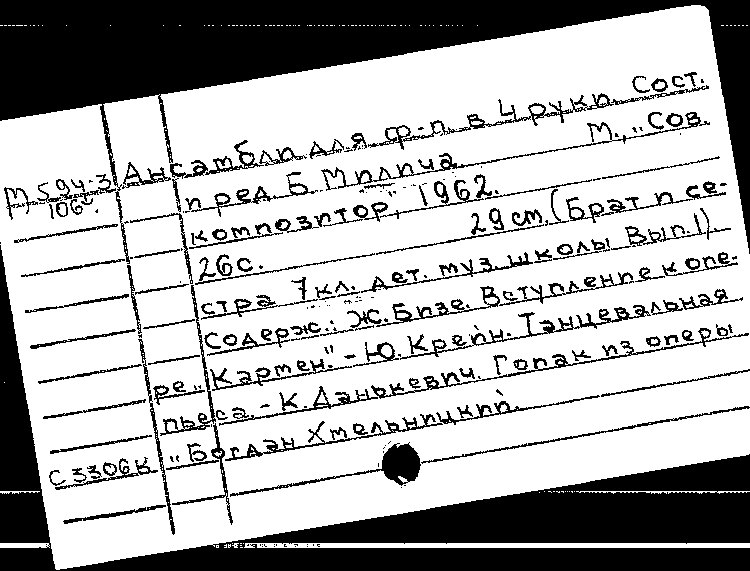 М 594-3 Ансамбли для ф-п. в 4 руки. Сост.
106 и ред. Б. Милича М., „Сов.
композитор", 1962.
26с. 29 см. (Брат и се-
стра 7 кл. дет. муз. школы Вып. 1).
Содерж.: Ж. Бизе. Вступление к опе-
ре „Кармен." - Ю. Крейн. Танцевальная
пьеса. - К. Данькевич. Гопак из оперы
С 3306к „Богдан Хмельницкий.